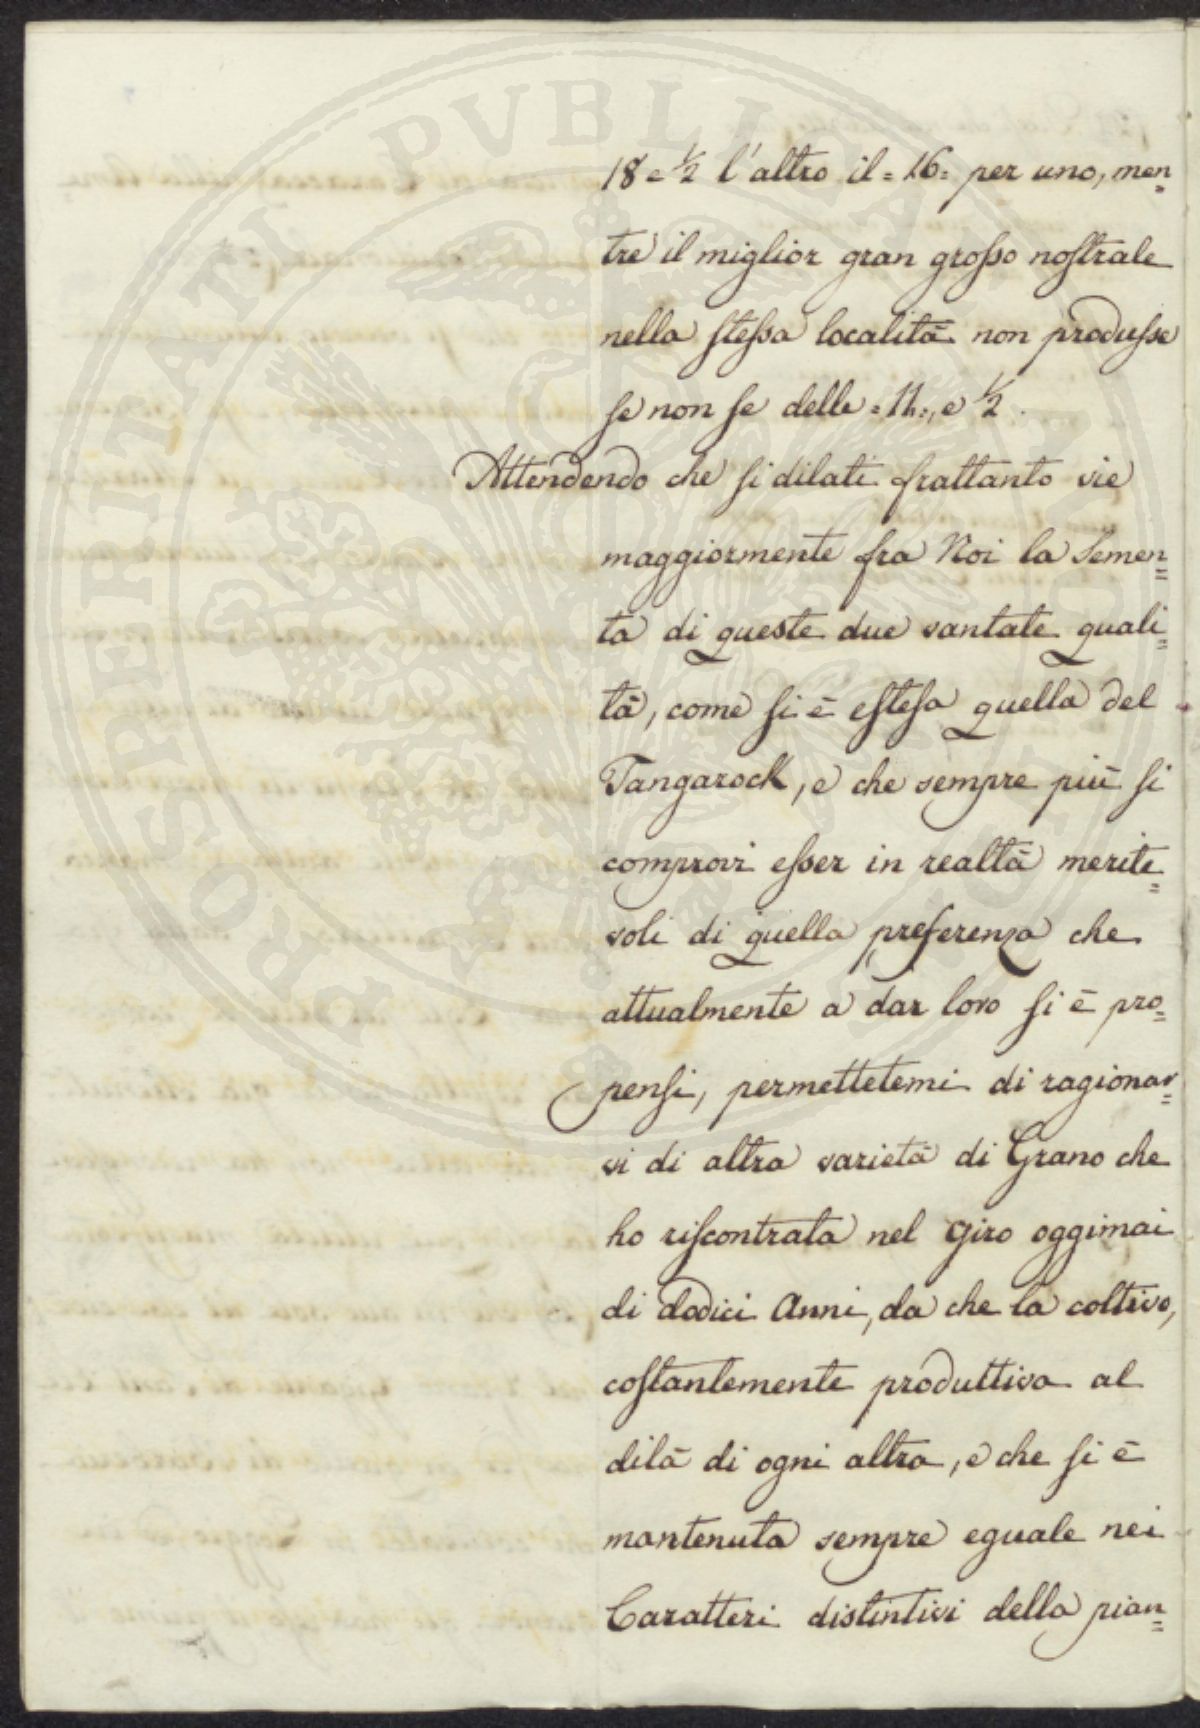 18 e ½ l'altro il = 16 = per uno, men=
tre il miglior gran grosso nostrale
nella stessa località non produsse
se non se delle = 11 =, e ½.
Attendendo che si dilati frattanto vie
maggiormente fra Noi la Semen=
ta di queste due vantate quali=
tà, come si è estesa quella del
Tangarock, e che sempre più si
comprovi esser in realtà merite=
voli di quella preferenza che
attualmente a dar loro si è pro=
pensi, permettetemi di ragionar=
vi di altra varietà di Grano che
ho riscontrata nel giro oggimai
di dodici Anni, da che la coltivo,
costantemente produttiva al
dilà di ogni altra, e che si è
mantenuta sempre eguale nei
Caratteri distintivi della pian=
PROSPERITATI PUBLICAE